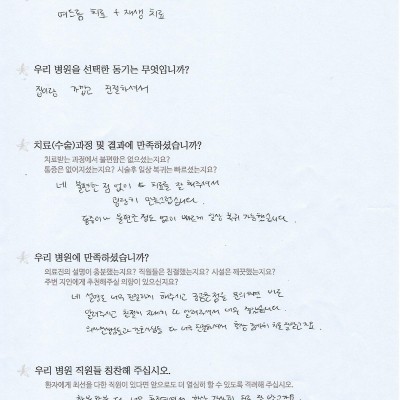 여드름 치료 + 재생 치료
우리 병원을 선택한 동기는 무엇입니까?
집이랑 가깝고 친절하셔서
치료(수술)과정 및 결과에 만족하셨습니까?
치료받는 과정에서 불편함은 없으셨는지요?
통증은 없어지셨는지요? 시술후 일상 복귀는 빠르셨는지요?
네 불편한 점 없이 치료를 잘 해주셔서
굉장히 만족합니다.
통증이나 불편한 점도 없이 빠르게 일상 복귀 가능했습니다.
우리 병원에 만족하셨습니까?
의료진의 설명이 충분했는지요? 직원들은 친절했는지요? 시설은 깨끗했는지요?
주변 지인에게 추천해주실 의향이 있으신지요?
네 설명도 너무 친절하게 해주시고 궁금한 점을 문의하면 바로
알려주시고 친절히 다 알려주셔서 너무 좋았습니다.
의사선생님도 간호사님들도 다 너무 친절하셔서 항상
우리 병원 직원들 칭찬해 주십시오.
환자에게 최선을 다한 직원이 있다면 앞으로도 더 열심히 할 수 있도록 격려해 주십시오.
다 너무 친절하셔서 항상